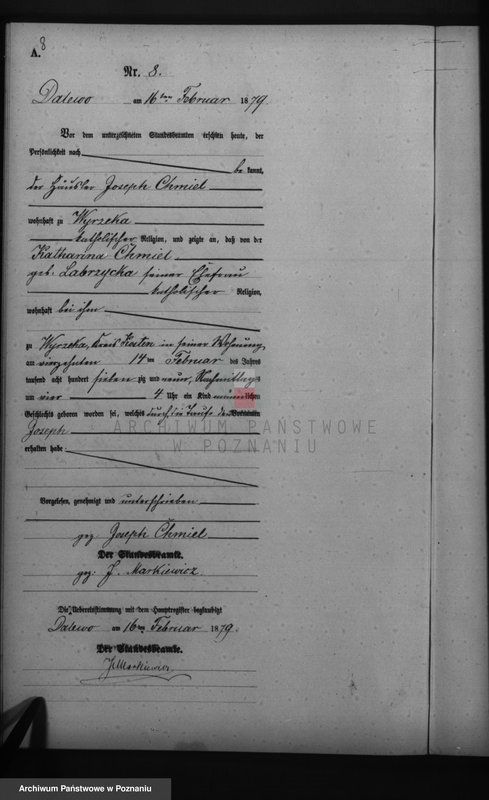 8
A.
Nr. 8.
Dalewo am 16ten Februar 1879.
Vor dem unterzeichneten Standesbeamten erschien heute, der
Persönlichkeit nach
be kannt,
der Häusler Joseph Chmiel
wohnhaft zu Wyrzeka
katholischer Religion, und zeigte an, daß von der
Katharina Chmiel
geb: Labrzycka seiner Ehefrau
katholischer Religion,
wohnhaft bei ihm
zu Wyrzeka, Kreis Kosten in seiner Wohnung
am vierzehnten 14 ten Februar des Jahres
tausend acht hundert siebenzig und neun, Nachmittags
um vier 4 Uhr ein Kind männlichen
Geschlechts geboren worden sei, welches durch die Taufe den Vornamen
Joseph
erhalten habe.
Vorgelesen, genehmigt und unterschrieben
gez Joseph Chmiel
Der Standesbeamte.
gez: J. Markiewicz.
Die Uebereinstimmung mit dem Hauptregister beglaubigt
Dalewo am 16ten Februar 1879.
Der Standesbeamte.
J Markiewicz
ARCHIWUM PAŃSTWOWE
W POZNANIU
Archiwum Państwowe w Poznaniu